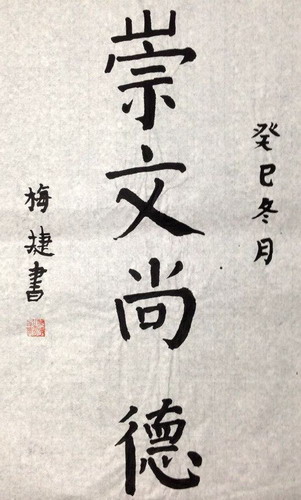 癸巳冬月
崇文尚德
梅捷書